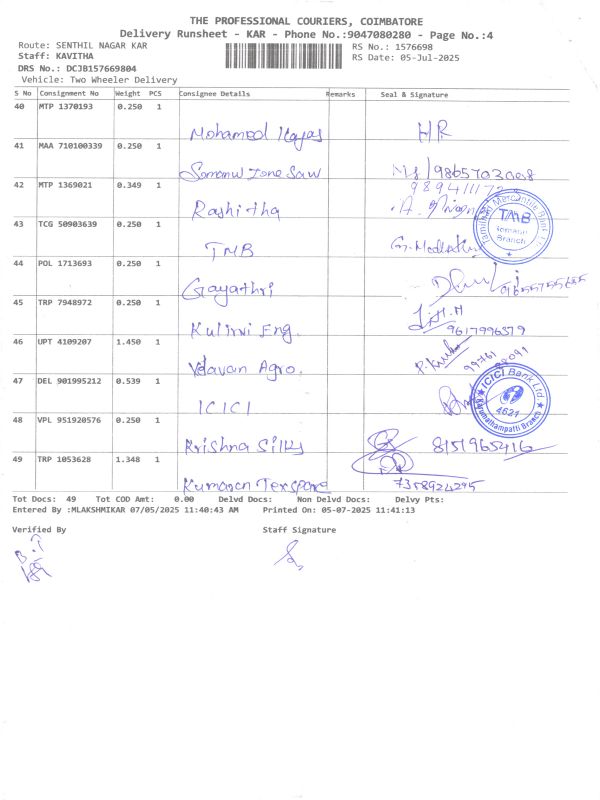 THE PROFESSIONAL COURIERS, COIMBATORE
Delivery Runsheet - KAR - Phone No.:9047080280 - Page No.:4
Route: SENTHIL NAGAR KAR
RS No.: 1576698
Staff: KAVITHA
RS Date: 05-Jul-2025
DRS No.: DCJB157669804
Vehicle: Two Wheeler Delivery
S No Consignment No Weight PCS Consignee Details Remarks Seal & Signature
40 MTP 1370193 0.250 1
Mohamed HR
41 MAA 710100339 0.250 1
42 MTP 1369021 0.349 1
Rashitha
43 TCG 50903639 0.250 1
TMB
Tamilnad Mercantile Bank
TMB
Branch
44 POL 1713693 0.250 1
Gayathri 9655755685
45 TRP 7948972 0.250 1
Eng. 9617996379
46 UPT 4109207 1.450 1
Velavan Agro.
47 DEL 901995212 0.539 1
ICICI
ICICI Bank Ltd
4621
Karumathampatti Branch
48 VPL 951920576 0.250 1
Krishna Silks 8151965416
49 TRP 1053628 1.348 1
Kumaran 7358924295
Tot Docs: 49 Tot COD Amt: 0.00 Delvd Docs: Non Delvd Docs: Delvy Pts:
Entered By :MLAKSHMIKAR 07/05/2025 11:40:43 AM Printed On: 05-07-2025 11:41:13
Verified By Staff Signature